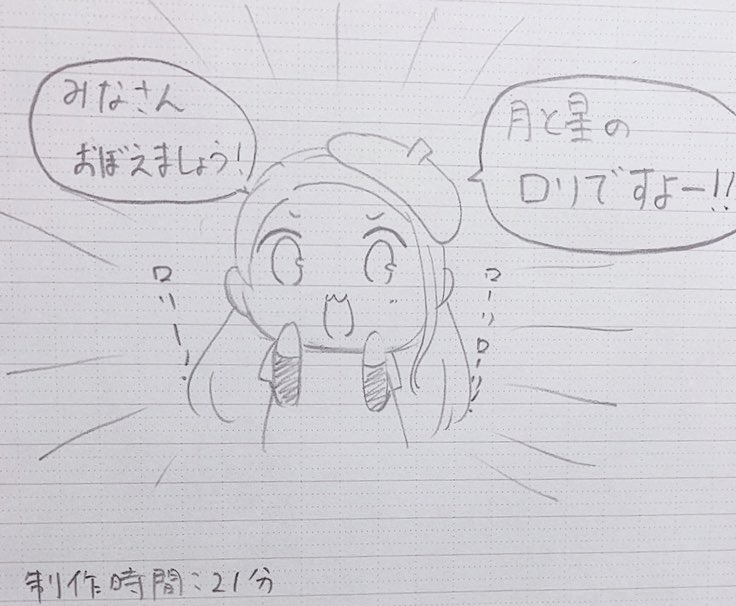 みなさん
おぼえましょう!
月と星の
ロリですよー!!
ロリー!
ローリ
ローリー!
制作時間:21分